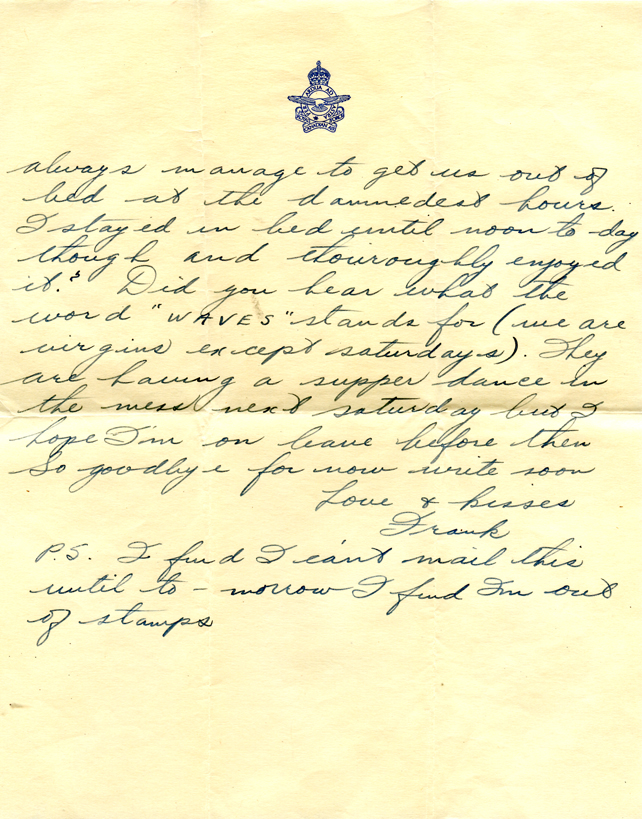 PER ARDUA AD ASTRA
ROYAL CANADIAN AIR FORCE
always manage to get us out of
bed at the damnedest hours.
I stayed in bed until noon to-day
though and thouroughly enjoyed
it. Did you hear what the
word "WAVES" stands for (we are
virgins except saturdays). They
are having a supper dance in
the mess next saturday but I
hope I'm on leave before then
So goodbye for now write soon
Love & kisses
Frank
P.S. I find I can't mail this
until to-morrow I find I'm out
of stamps